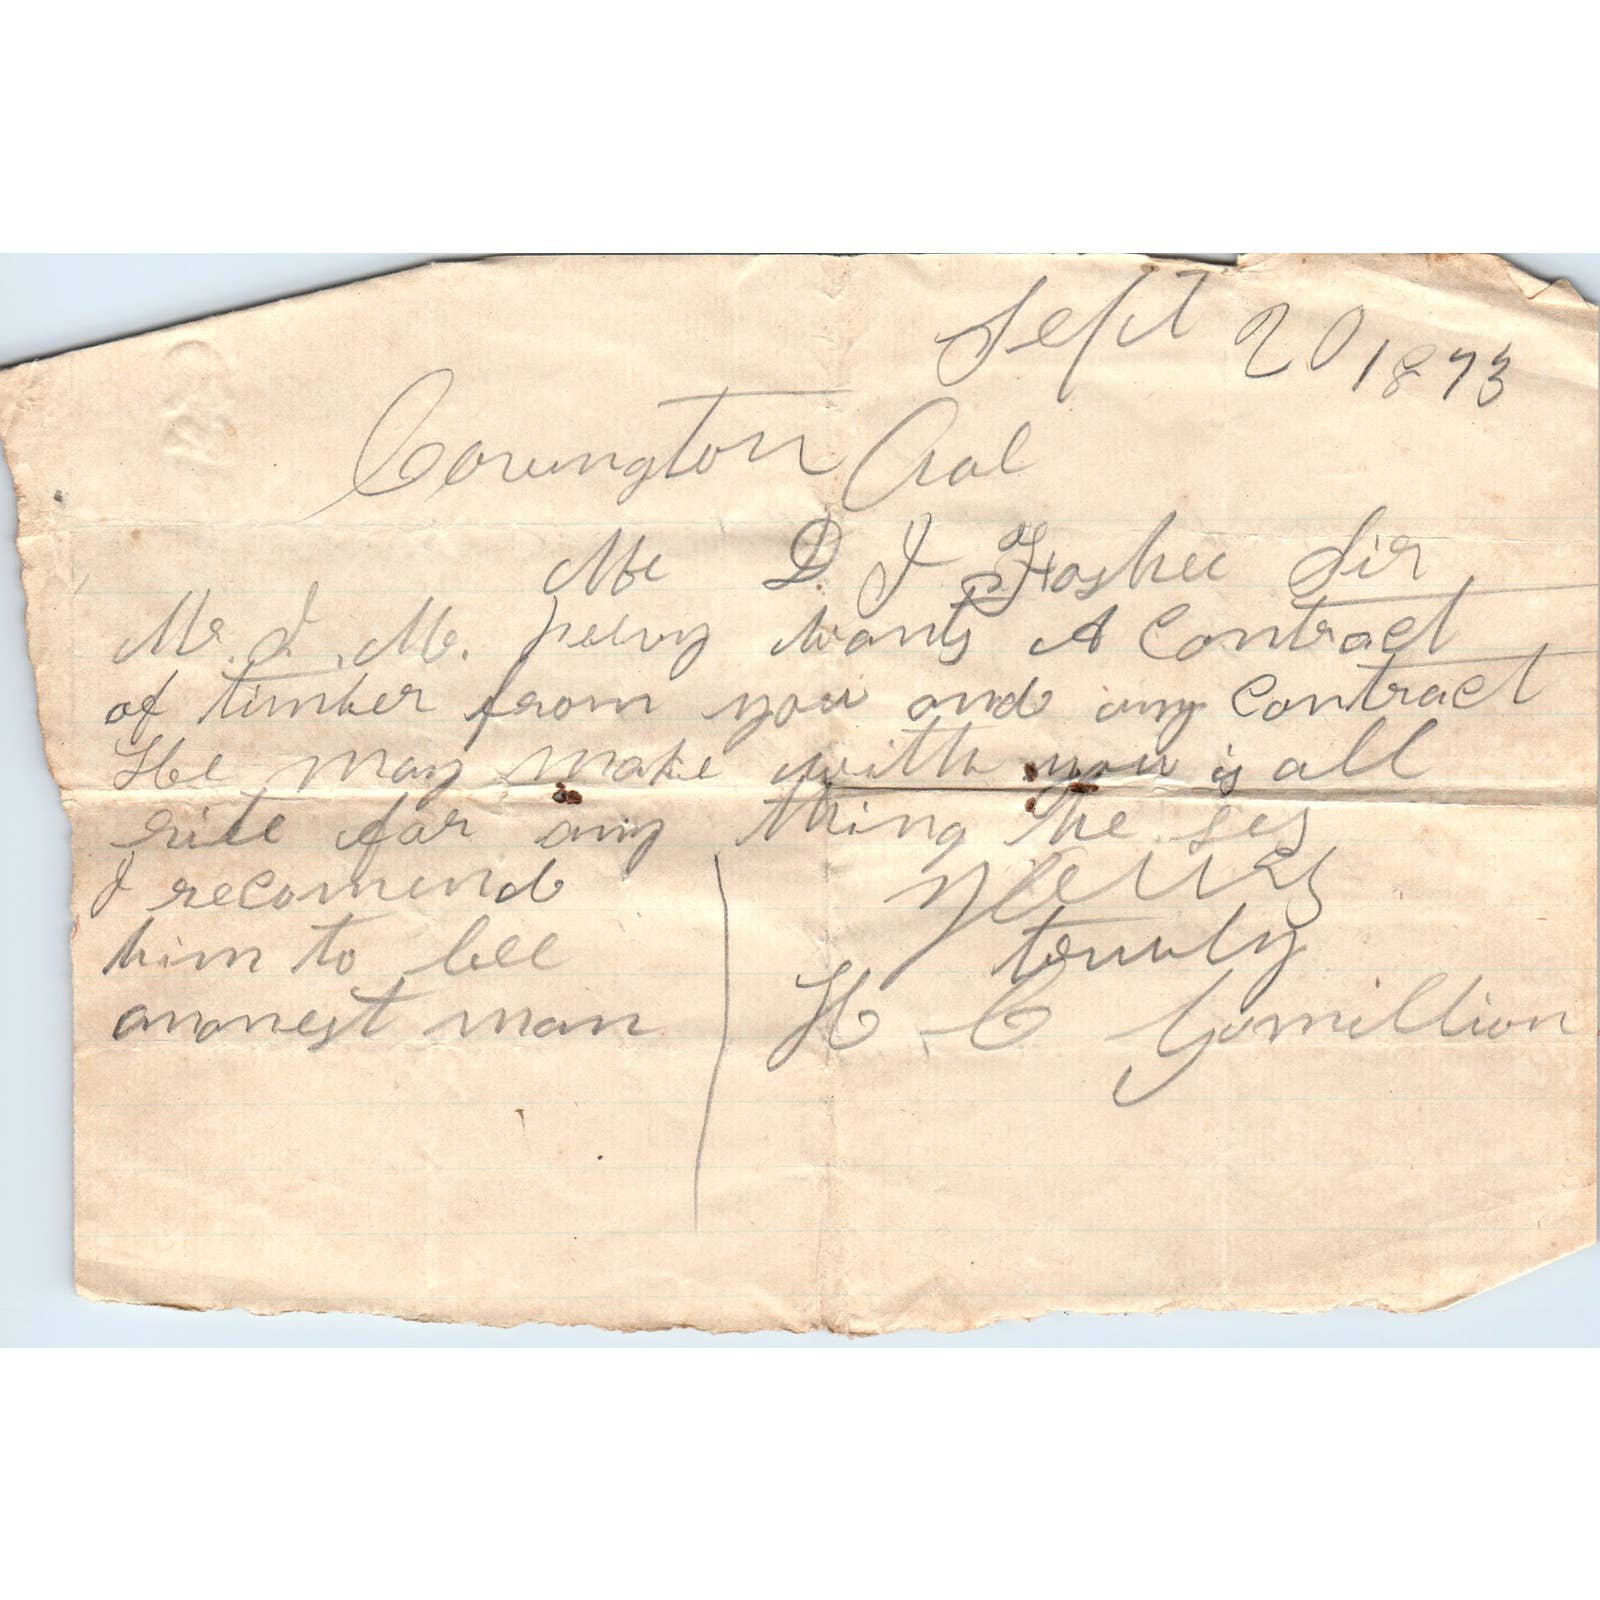 Sept 20 1873
Covington Co Al
Mr D. J Foshee Sir
Mr. J. M. wants A Contract
of timber from you and any Contract
He may make with you is all
rite for any thing the ses
I recomend
him to bee
anonest man
Yeurs
truuly
H. C Gomillion